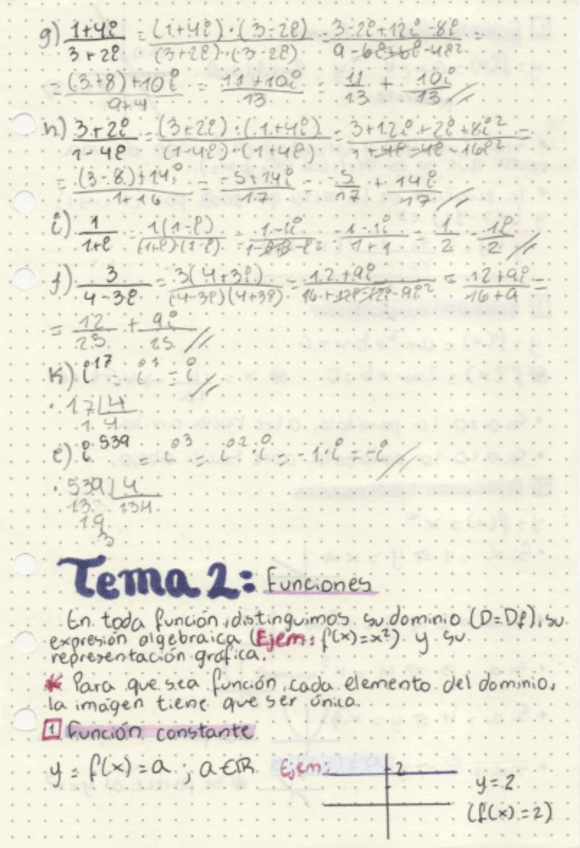 g) (1+4i)/(3+2i) = ((1+4i)·(3-2i))/((3+2i)·(3-2i)) = (3-2i+12i-8i)/(9-6i+6i-4i²) =
= ((3+8)+10i)/(9+4) = (11+10i)/13 = 11/13 + 10i/13 //
h) (3+2i)/(1-4i) = ((3+2i)·(1+4i))/((1-4i)·(1+4i)) = (3+12i+2i+8i²)/(1+4i-4i-16i²) =
= ((3-8)+14i)/(1+16) = (-5+14i)/17 = -5/17 + 14i/17 //
i) 1/(1+i) = 1(1-i)/((1+i)(1-i)) = (1-1i)/ = (1-1i)/(1+1) = 1/2 - 1i/2 //
j) 3/(4-3i) = 3(4+3i)/((4-3i)(4+3i)) = (12+9i)/(16+12i-12i-9i²) = (12+9i)/(16+9) =
= 12/25 + 9i/25 //
k) i^17 = i^1 = i //
· 17 | 4
1 4
l) i^539 = i^3 = i^2·i = -1·i = -i //
· 539 | 4
13 134
19
3
Tema 2: Funciones
En toda función, distinguimos su dominio (D=Df), su
expresión algebraica (Ejem: f(x)=x²) y su
representación gráfica.
* Para que sea función, cada elemento del dominio,
la imagen tiene que ser única.
1 Función constante
y = f(x) = a ; a ∈ ℝ Ejem: 2 y=2
(f(x)=2)